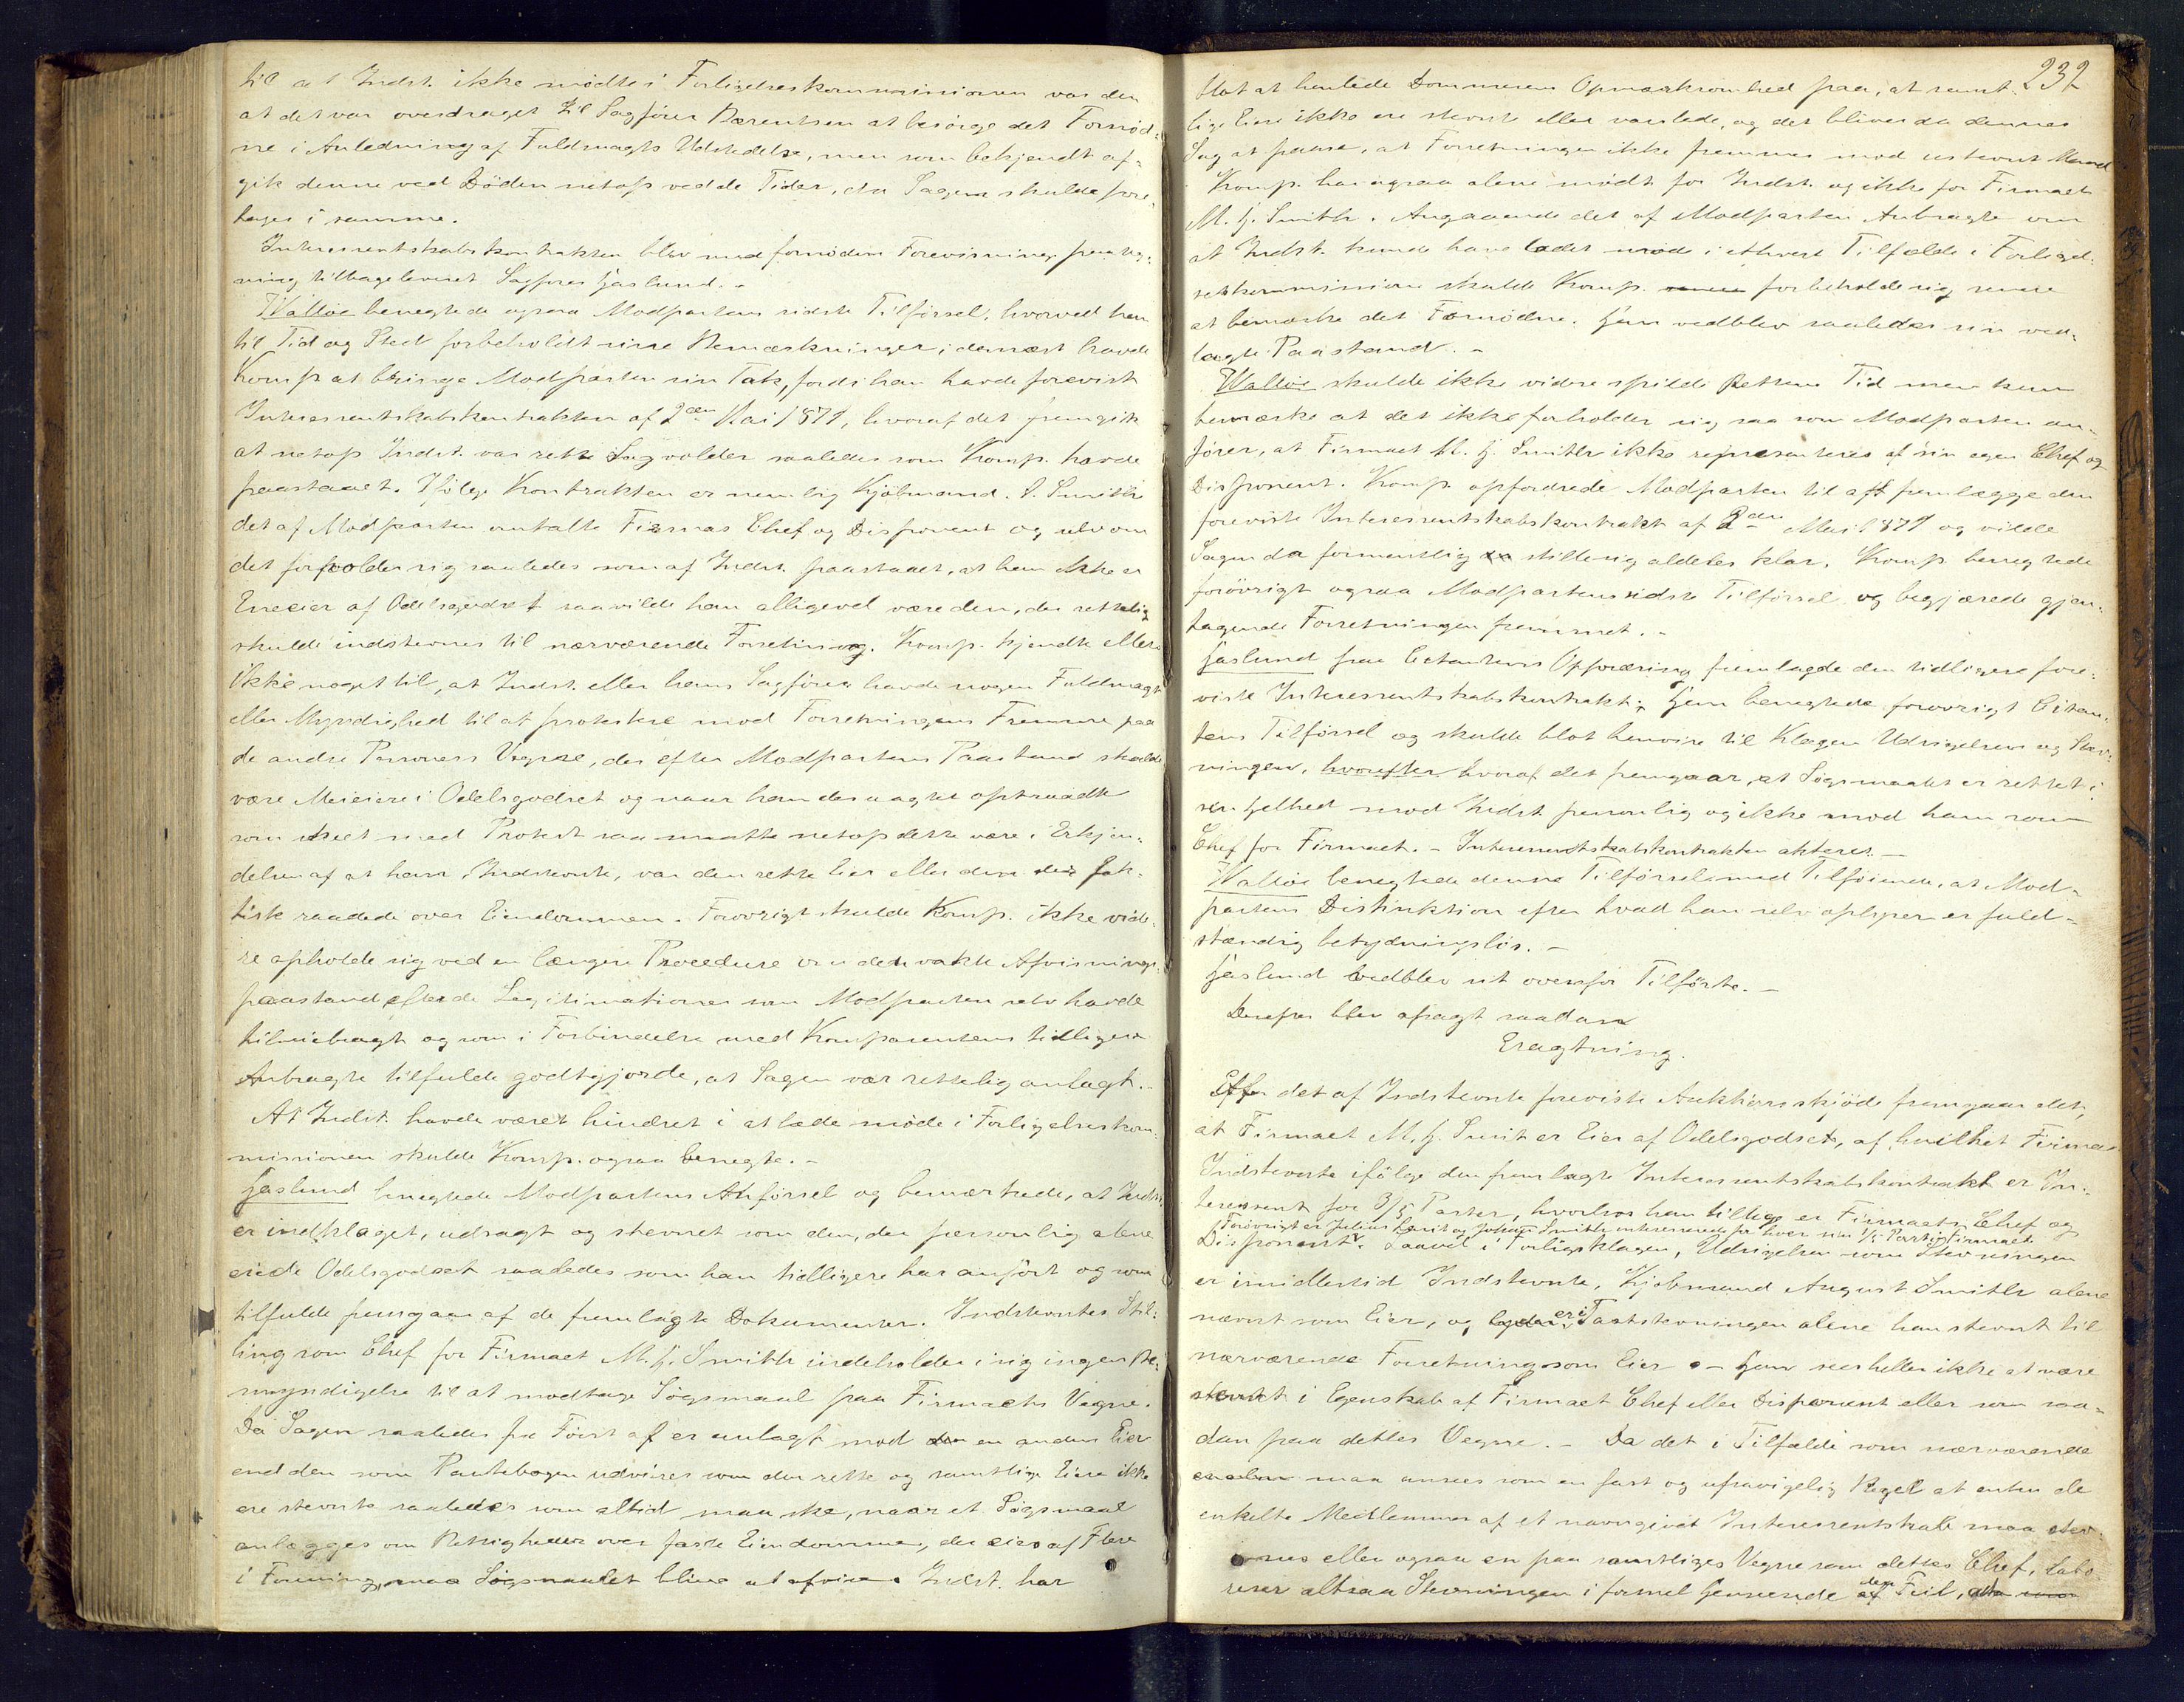 til at Indst. ikke mødte i Forligelseskommissionen var den
at det var overdraget til Sagfører Barentsen at besørge det Fornød-
ne i Anledning af Fuldmagts Udstedelse, men som bekjendt af-
gik denne ved Døden netop ved de Tider, da Sagen skulde fore-
tages i samme.
Interessentskabskontrakten blev med fornøden Forevisnings paateg-
ning tilbageleveret Sagfører Haslund. -
Walløe benegtede ogsaa Modpartens sidste Tilførsel, hvorved han
til Tid og Sted forbeholdt sine Bemærkninger; dernæst havde
Komp. at bringe Modparten sin Tak, fordi han havde forevist
Interessentskabskontrakten af 2den Mai 1871, hvoraf det fremgik
at netop Indst. var rette Sagvolder saaledes som Komp. havde
paastaaet. Ifølge Kontrakten er nemlig Kjøbmand A. Smith
det af Modparten omtalte Firmas Chef og Disponent og selv om
det forholder sig saaledes som af Indst. paastaaet, at han ikke er
Eneeier af Odelsgodset saa vilde han alligevel være den, der rettelig
skulde indstevnes til nærværende Forretning. Komp. kjendte ellers
ikke noget til, at Indst. eller hans Sagfører havde nogen Fuldmagt
eller Myndighed til at protestere mod Forretningens Fremme paa
de andre Personers Vegne, der efter Modpartens Paastand skulde
være Meieiere i Odelsgodset og naar han desuagtet optraadte
som skeet med Protest saa maatte netop dette være i Erkjen-
delsen af at han, Indstevnte, var den rette Eier eller den der fak-
tisk raadede over Eiendommen. Forøvrigt skulde Komp. ikke vide-
re opholde sig ved en længere Procedure om den vakte Afvisnings-
paastand efter de Legitimationer som Modparten selv havde
tilveiebragt og som i Forbindelse med Komparentens tidligere
Anbragte tilfulde godtgjorde, at Sagen var rettelig anlagt. -
At Indst. havde været hindret i at lade møde i Forligelseskom-
missionen skulde Komp. ogsaa benegte. -
Haslund benegtede Modpartens Anførsel og bemærkede, at Indst.
er indklaget, udsagt og stevnet som den, der personlig alene
eiede Odelsgodset saaledes som han tidligere har anført og som
tilfulde fremgaar af de fremlagte Dokumenter. Indstevntes Stil-
ling som Chef for Firmaet M. H. Smith indeholder i sig ingen Be-
myndigelse til at modtage Søgsmaal paa Firmaets Vegne.
Da Sagen saaledes fra Først af er anlagt mod en anden Eier
end den som Pantebogen udviser som den rette og samtlige Eiere ikke
ere stevnte saaledes som altid maa ske, naar et Søgsmaal
anlægges om Rettigheder over faste Eiendomme, der eies af Flere
i Forening, maa Søgsmaalet blive at afvise. Indst. har
232
blot at henlede Dommerens Opmærksomhed paa, at samt-
lige Eiere ikke ere stevnt eller varslede, og det bliver da dennes
Sag at paase, at Forretningen ikke fremmes mod ustevnt Mand
Komp. har ogsaa alene mødt for Indst. og ikke for Firmaet
M. H. Smith. Angaaende det af Modparten Anbragte om
at Indst. kunde have ladet mød i ethvert Tilfælde i Forligel-
seskommissionen skulde Komp. forbeholde sig senere
at bemærke det Fornødne. Han vedblev saaledes sin ned-
lagte Paastand. -
Walløe skulde ikke videre spilde Rettens Tid men kun
bemærke at det ikke forholder sig saa som Modparten an-
fører, at Firmaet M. H. Smith ikke representeres af sin egen Chef og
Disponent. Komp. opfordrede Modparten til at fremlægge den
foreviste Interessentskabskontrakt af 2den Mai 1871 og vilde
Sagen da formentlig stille sig aldeles klar. Komp. benegtede
forøvrigt ogsaa Modpartens sidste Tilførsel og begjærede gjen-
tagende Forretningen fremmet. -
Haslund paa Citantens Opfordring fremlagde den tidligere fore-
viste Interessentskabskontrakt; Han benegtede forøvrigt Citan-
tens Tilførsel og skulde blot henvise til Klagen Udsigelsen og Stev-
ningen, hvorefter hvoraf det fremgaar, at Søgsmaalet er rettet i
sin Helhed mod Indst personlig og ikke mod ham som
Chef for Firmaet. - Interessentskabskontrakten akteres. -
Walløe benegtede denne Tilførsel med Tilføiende, at Mod-
partens Distinktion efter hvad han selv oplyser er fuld-
stændig betydningsløs. -
Haslund vedblev sit ovenfor Tilførte. -
Derefter blev afsagt saadan
Eragtning.
Efter det af Indstevnte foreviste Auktionsskjøde fremgaar det,
at Firmaet M. H. Smit er Eier af Odelsgodset, af hvilket Firma
Indstevnte ifølge den fremlagte Interessentskabskontrakt er In-
teressent for 3/5 Parter, hvorhos han tillige er Firmaets Chef og
Forøvrigt er Julius Smit og Johan Smith interesserede for hver sin 1/5 Part i Firmaet.
Disponent. Saavel i Forligsklagen, Udsigelsen som Stevningen
er imidlertid Indstevnte, Kjøbmand August Smith alene
nævnt som Eier, og er i Taststevningen alene han stevnt til
nærværende Forretning som Eier - Han sees heller ikke at være
stevnt i Egenskab af Firmaet Chef eller Disponent eller som saa-
dan paa dettes Vegne. - Da det i Tilfælde som nærværende
maa ansees som en fast og ufravigelig Regel at enten de
enkelte Medlemmer af et navngivet Interessentskab maa stev-
nes eller ogsaa en paa samtliges Vegne som dettes Chef, labo-
rerer altsaa Stevningen i formel Henseende af den Feil,